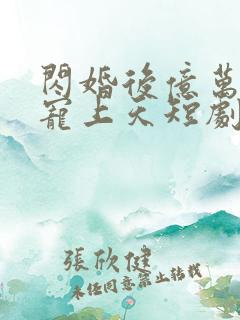 閃婚後億萬
寵上天短劇
張欣健
未經同意禁止轉載